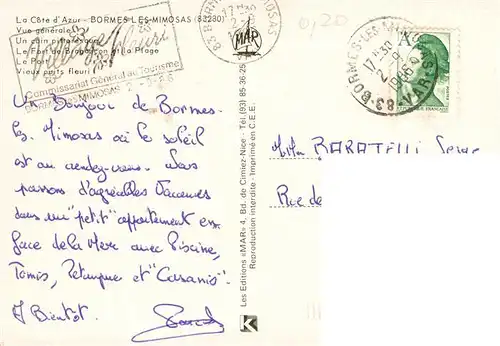 La Côte d'Azur - BORMES-LES-MIMOSAS (83230)
Vue générale
Un coin pittoresque
Le Fort de Brégançon et la Plage
Le Port
Vieux puits fleuri
Village fleuri
Commissariat Général au Tourisme
BORMES-LES-MIMOSAS
17 H 30
MAR
0,20
83-BORMES-LES-MIMOSAS VAR
17 H 30
Un Bonjour de Bormes-
les Mimosas où le soleil
est au rendez-vous. Nous
passons d'agréables vacances
dans un "petit" appartement en
face de la Mer avec Piscine,
Tennis, Petanque et "Casanis".
A Bientôt.
Les Editions «MAR» 4, Bd. de Cimiez-Nice - Tél. (93) 85-36-25
Reproduction interdite - Imprimé en C.E.E.
BARATELLI Serge
Rue de
A
K